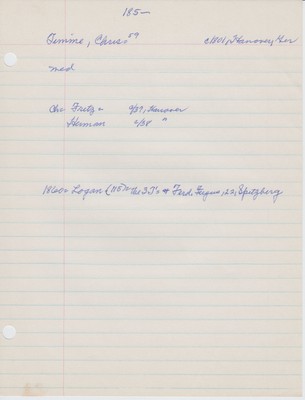 185—
Timme, Chris 59 c1801, Hanover, Ger
med
Chr Fritz 2/27, Hanover
Herman 2/38 "
1860 Logan (115 the 3 J's + Ferd. , 22, Spitzberg